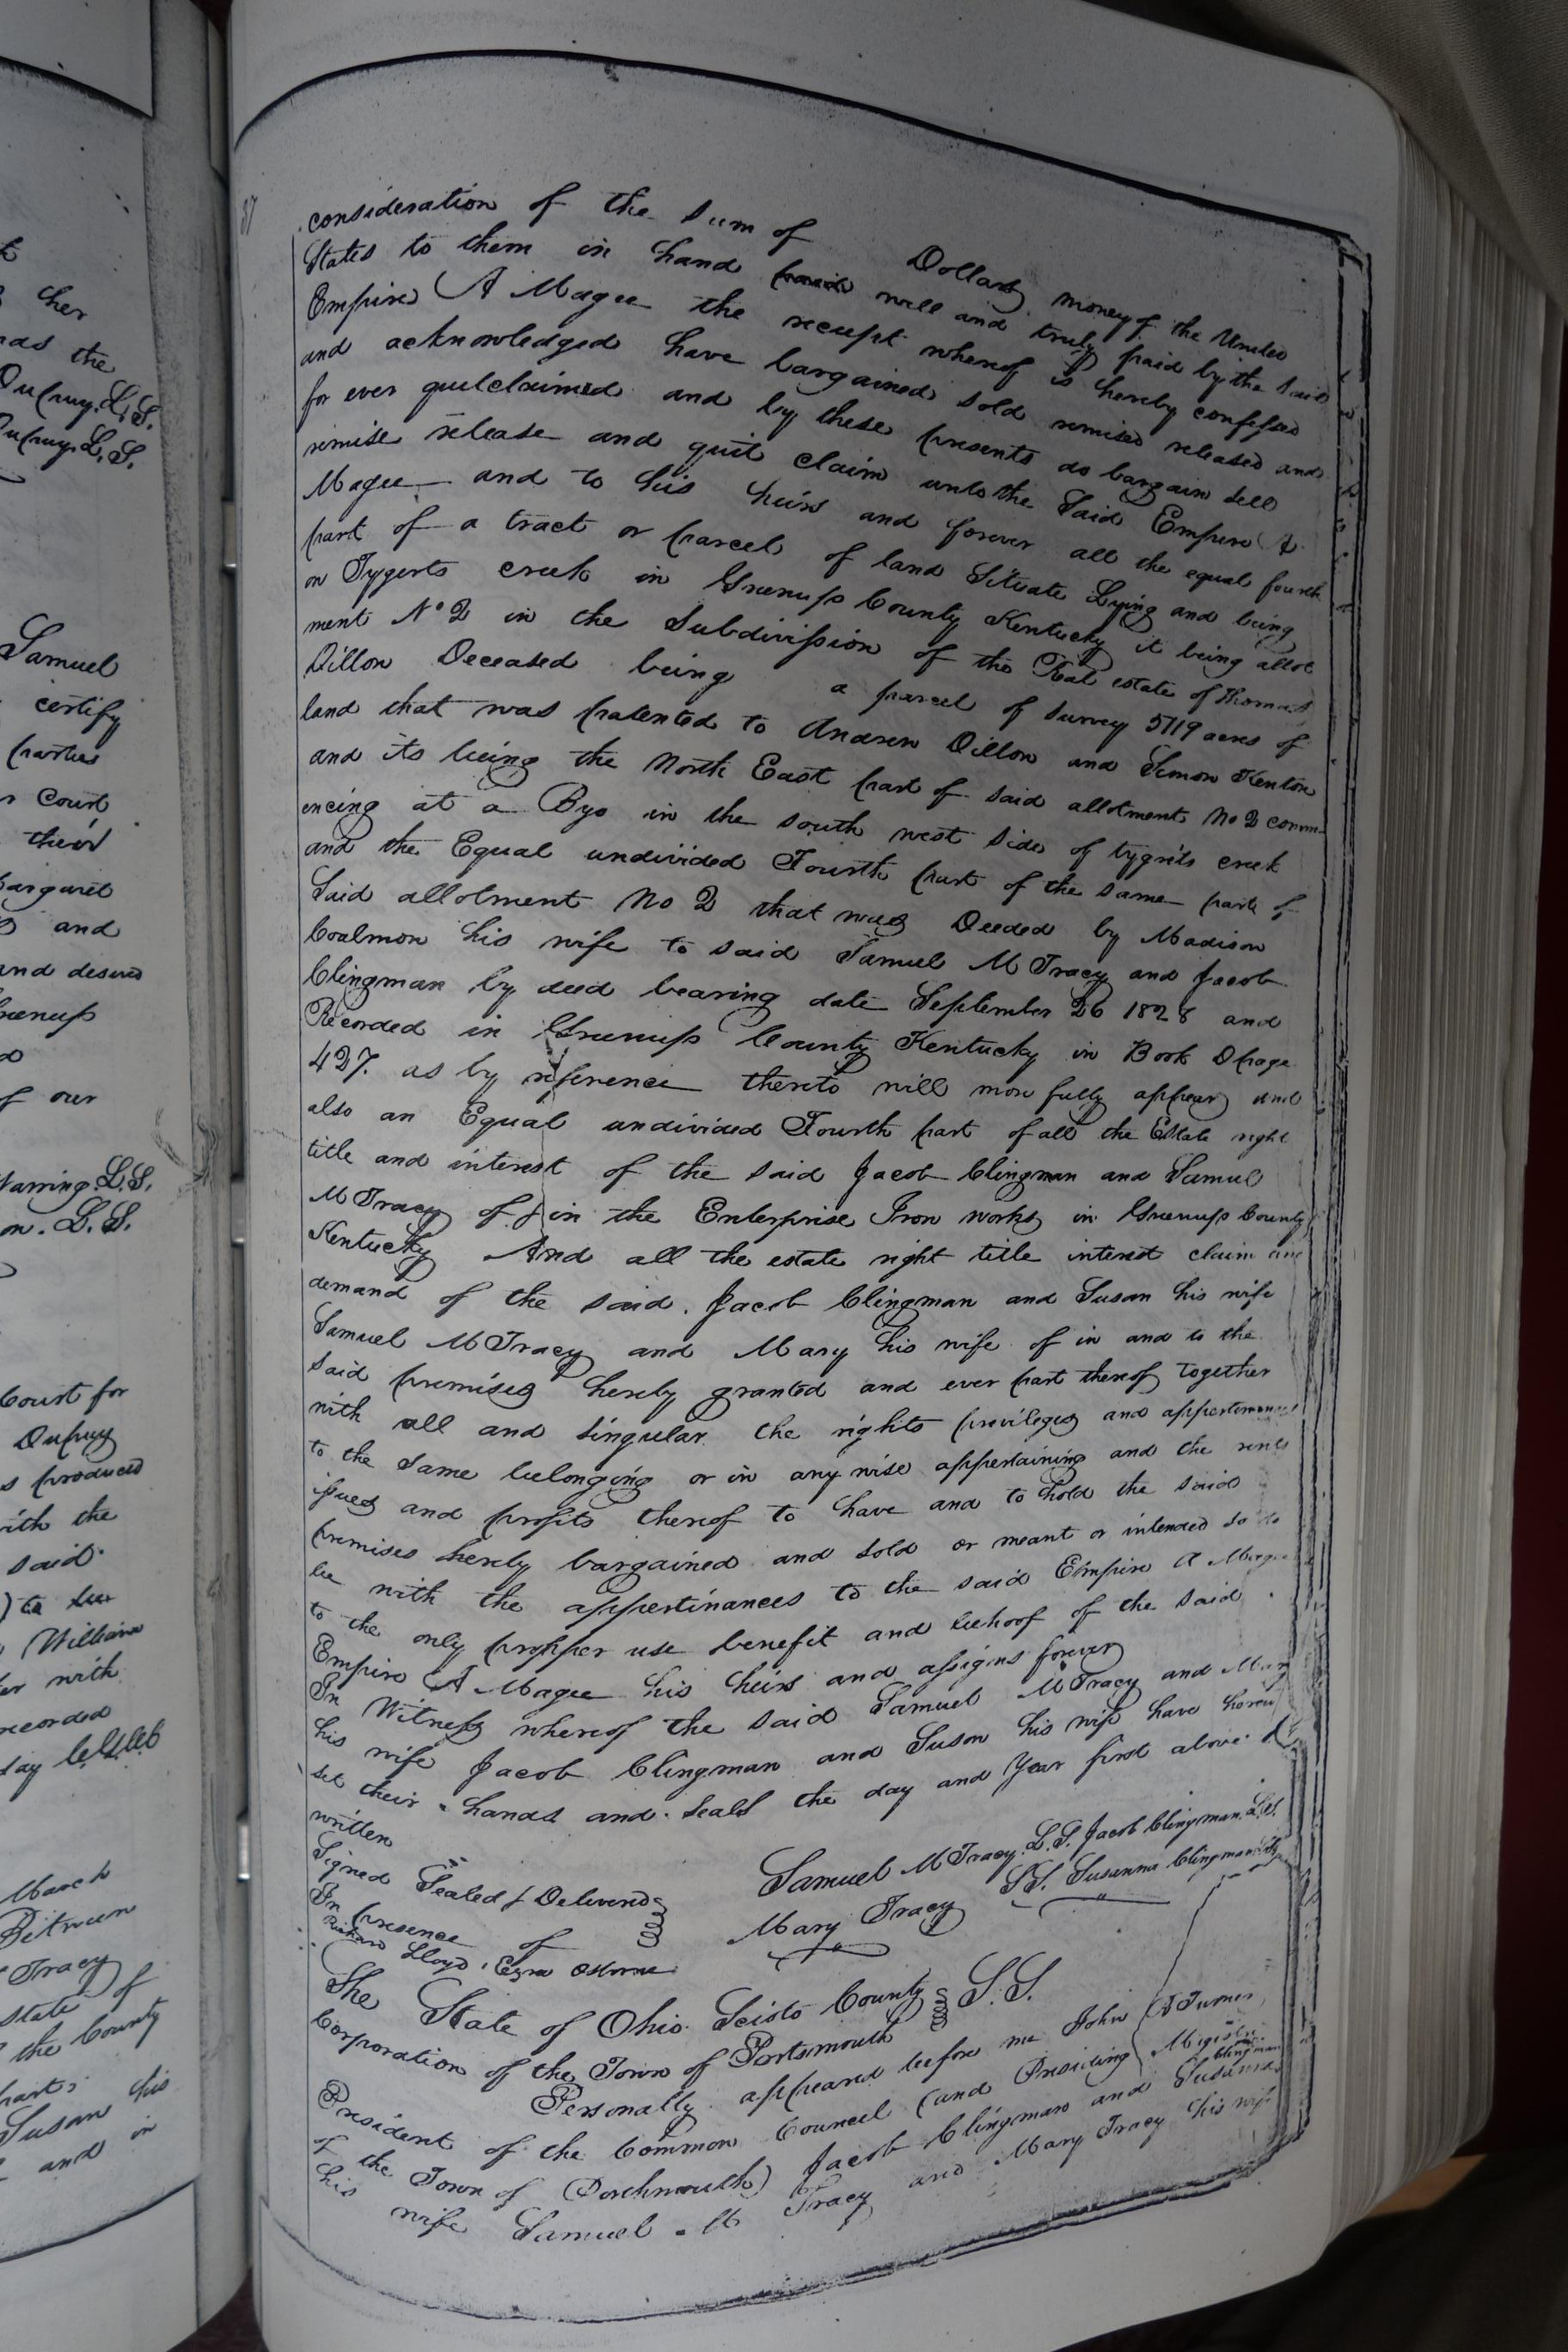 her
the
L.S.
L.S.
Samuel
certify
parties
Court
their
Margaret
and
and desired
Greenup
of our
Warring L.S.
on. L.S.
Court for
Dupuy
produced
with the
said
to be
William
with
recorded
day
March
Between
Tracy
State of
the County
part;
Susan his
and in
37
consideration of the sum of Dollars money of the United
States to them in hand paid well and truly paid by the said
Empire A Magee the receipt whereof is hereby confessed
and acknowledged have bargained sold remised released and
for ever quitclaimed and by these presents do bargain sell
remise release and quit claim unto the Said Empire A
Magee and to his heirs and forever all the equal fourth
part of a tract or parcel of land Situate Lying and being
on Tygerts creek in Greenup County Kentucky it being allot
ment No 2 in the Subdivission of the Real estate of Thomas
Dillon Deceased being a parcel of survey 5119 acres of
land that was patented to Andrew Dillon and Simon Kenton
and its being the North East part of said allotment No 2 comm
encing at a Byo in the south west side of tygrits creek
and the Equal undivided Fourth part of the same part of
Said allotment No 2 that was Deeded by Madison
Coalmon his wife to said Samuel M Tracy and Jacob
Clingman by deed bearing date September 26 1828 and
Recorded in Greenup County Kentucky in Book D page
427. as by reference thereto will more fully appear and
also an Equal undivided Fourth part of all the Estate right
title and interest of the said Jacob Clingman and Samuel
M Tracy of & in the Enterprise Iron works in Greenup County
Kentucky And all the estate right title interest claim and
demand of the said. Jacob Clingman and Susan his wife
Samuel M Tracy and Mary his wife of in and to the
said premises hereby granted and ever part thereof together
with all and singular the rights privileges and appertinances
to the same belonging or in any wise appertaining and the rents
issues and profits thereof to have and to hold the said
premises hereby bargained and sold or meant or intended so to
be with the appertinances to the said Empire A Magee
to the only propper use benefit and behoof of the said
Empire A Magee his heirs and assigns forever
In Witness whereof the said Samuel M Tracy and Mary
his wife Jacob Clingman and Suson his wife have hereu
set their hands and seals the day and Year first above
written
Signed Sealed & Delivered
In presence of
Richard Lloyd. Ezra Osborne
Samuel M Tracy L.S. Jacob Clingman. L.S.
Mary Tracy L.S. Susanna Clingman
The State of Ohio Scioto County S.S.
Corporation of the Town of Portsmouth
Personally appeared before me John A Turner
President of the Common Council (and Presiding
of the Town of Porchmouth) Jacob Clingman and Susanna Clingman
his wife Samuel M Tracy and Mary Tracy his wife